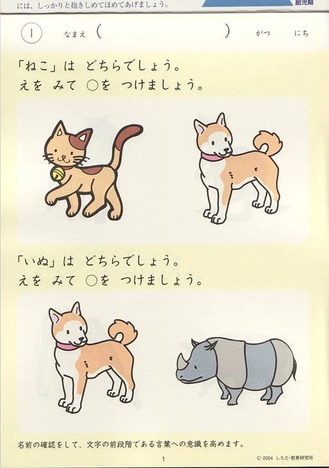 には、しっかりと抱きしめてほめてあげましょう。
幼児期
1 なまえ ( ) がつ にち
「ねこ」は どちらでしょう。
えを みて ○を つけましょう。
「いぬ」は どちらでしょう。
えを みて ○を つけましょう。
名前の確認をして、文字の前段階である言葉への意識を高めます。
1
© 2004 しちだ・教育研究所